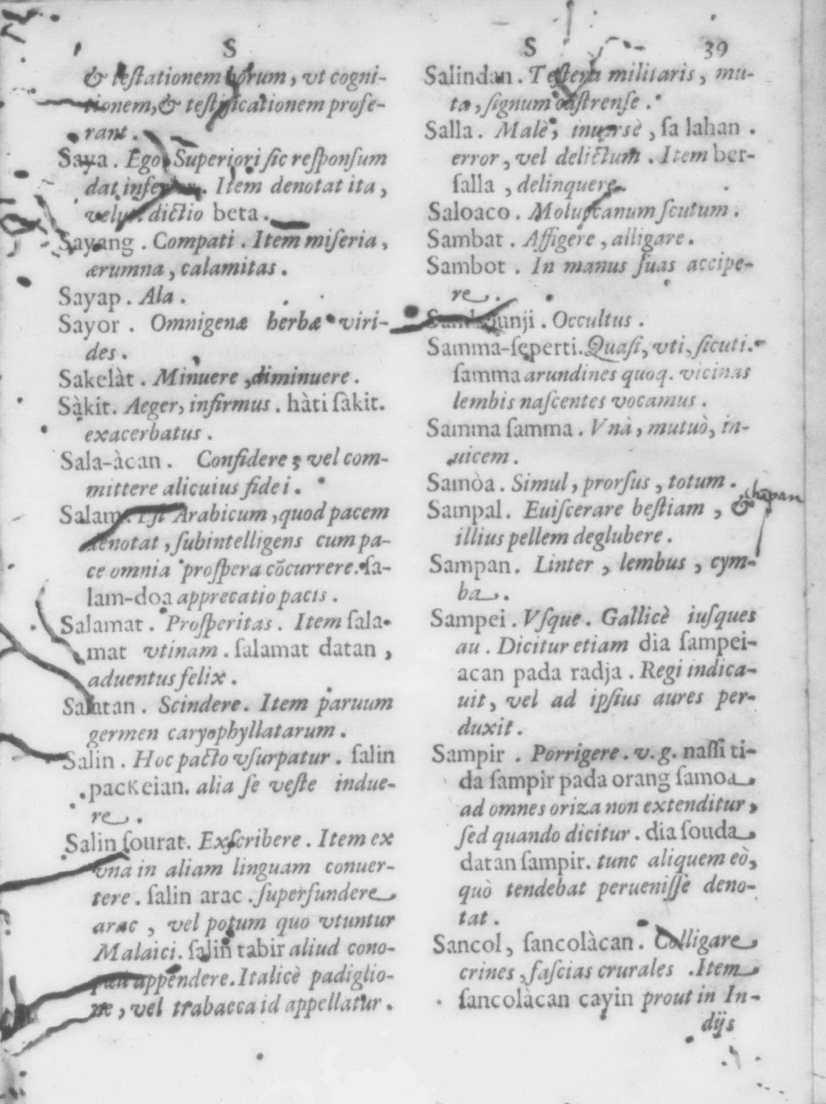 S
& testationem horum, vt cogni-
tionem, & testificationem profe-
rant.
Saya. Ego. Superiori sic responsum
dat inferior. Item denotat ita,
velut dictio beta.
Sayang. Compati. Item miseria,
ærumna, calamitas.
Sayap. Ala.
Sayor. Omnigenæ herbæ viri-
des.
Sakelàt. Minuere, diminuere.
Sàkit. Aeger, infirmus. hàti sàkit.
exacerbatus.
Sala-àcan. Confidere; vel com-
mittere alicuius fidei.
Salam. Est Arabicum, quod pacem
denotat, subintelligens cum pa-
ce omnia prospera cõcurrere. sa-
lam-doa apprecatio pacis.
Salamat. Prosperitas. Item sala-
mat vtinam. salamat datan,
aduentus felix.
Salatan. Scindere. Item paruum
germen caryophyllatarum.
Salin. Hoc pacto vsurpatur. salin
packeian. alia se veste indue-
re.
Salin sourat. Exscribere. Item ex
vna in aliam linguam conuer-
tere. salin arac. superfundere
arac, vel potum quo vtuntur
Malaici. salin tabir aliud cono-
pæū appendere. Italicè padiglio-
ne, vel trabacca id appellatur.
S 39
Salindan. Testera militaris, mu-
ta, signum castrense.
Salla. Malè, inuersè, sa lahan.
error, vel delictum. Item ber-
salla, delinquere.
Saloaco. Moluccanum scutum.
Sambat. Affigere, alligare.
Sambot. In manus suas accipe-
re.
Samбounji. Occultus.
Samma-seperti. Quasi, vti, sicuti.
samma arundines quoq. vicinas
lembis nascentes vocamus.
Samma samma. Vnà, mutuò, in-
uicem.
Samòa. Simul, prorsus, totum.
Sampal. Euiscerare bestiam, &
chapan
illius pellem deglubere.
Sampan. Linter, lembus, cym-
ba.
Sampei. Vsque. Gallicè iusques
au. Dicitur etiam dia sampei-
acan pada radja. Regi indica-
uit, vel ad ipsius aures per-
duxit.
Sampir. Porrigere. v. g. nassi ti-
da sampir pada orang samoa
ad omnes oriza non extenditur,
sed quando dicitur. dia souda
datan sampir. tunc aliquem eò,
quò tendebat peruenisse deno-
tat.
Sancol, sancolàcan. Colligare
crines, fascias crurales. Item
sancolàcan cayin prout in In-
dijs